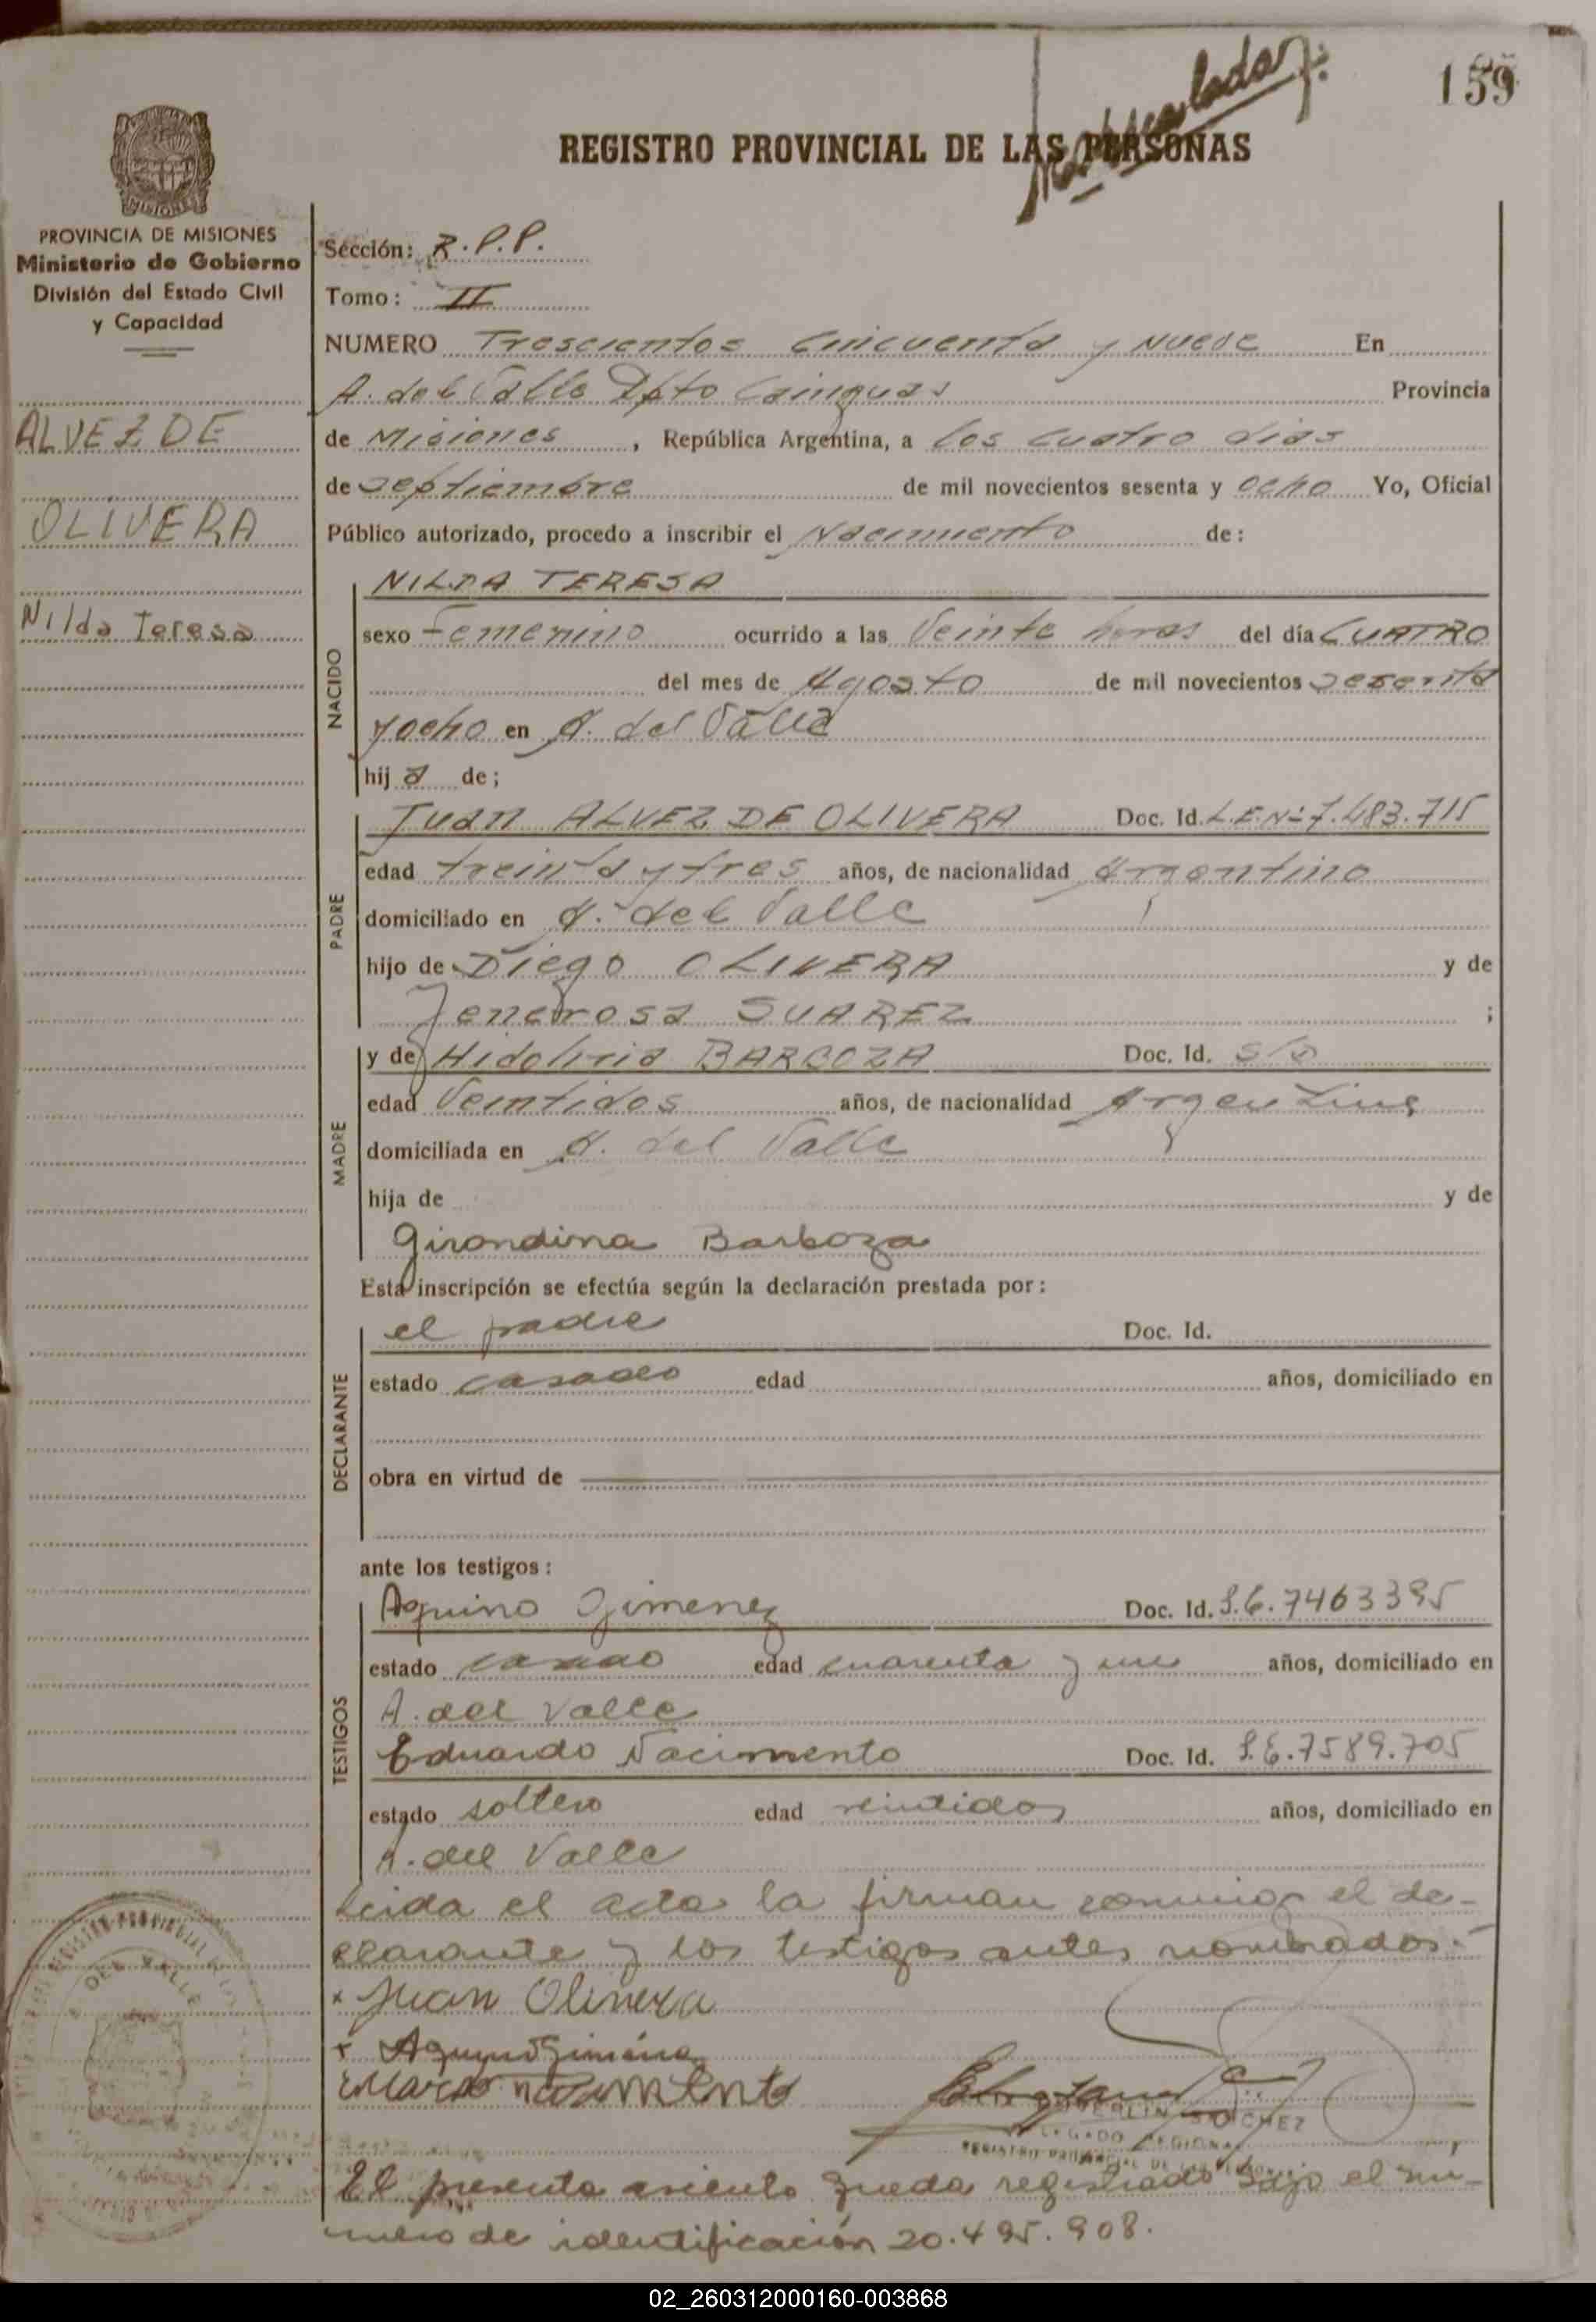 Matriculada
159
REGISTRO PROVINCIAL DE LAS PERSONAS
MISIONES
PROVINCIA DE MISIONES
Ministerio de Gobierno
División del Estado Civil
y Capacidad
ALVEZ DE
OLIVERA
Nilda Teresa
Sección: R.P.P.
Tomo: II
NUMERO Trescientos Cincuenta y Nueve En
A. del Valle Dpto Cainguas Provincia
de Misiones, República Argentina, a los cuatro dias
de septiembre de mil novecientos sesenta y ocho Yo, Oficial
Público autorizado, procedo a inscribir el Nacimiento de:
NACIDO
NILDA TERESA
sexo Femenino ocurrido a las Veinte horas del día CUATRO
del mes de Agosto de mil novecientos sesenta
y ocho en A. del Valle
hij a de;
PADRE
Juan ALVEZ DE OLIVERA Doc. Id. L.E.Nº 7.483.715
edad treinta y tres años, de nacionalidad Argentino
domiciliado en A. del Valle
hijo de Diego OLIVERA y de
Jenerosa SUAREZ ;
MADRE
y de BARBOZA Doc. Id. S/D
edad Veintidos años, de nacionalidad Argentina
domiciliada en A. del Valle
hija de y de
Girondina Barboza
Esta inscripción se efectúa según la declaración prestada por:
DECLARANTE
el padre Doc. Id.
estado casado edad años, domiciliado en
obra en virtud de
ante los testigos:
TESTIGOS
Aquino Gimenez Doc. Id. L.E. 7463395
estado casado edad cuarenta y un años, domiciliado en
A. del Valle
Eduardo Nacimento Doc. Id. L.E. 7589.705
estado soltero edad veintidos años, domiciliado en
A. del Valle
Leida el acta la firman conmigo el de-
clarante y los testigos antes nombrados.-
x Juan Olivera
x Aquino Gimenez
Eduardo nasimento
SANCHEZ
DELEGADO REGIONAL
REGISTRO PROVINCIAL DE LAS PERSONAS
DEL VALLE
El presente asiento queda registrado bajo el nú-
mero de identificación 20.495.908.
02_260312000160-003868